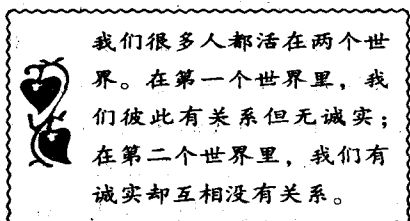 我们很多人都活在两个世
界。在第一个世界里，我
们彼此有关系但无诚实；
在第二个世界里，我们有
诚实却互相没有关系。